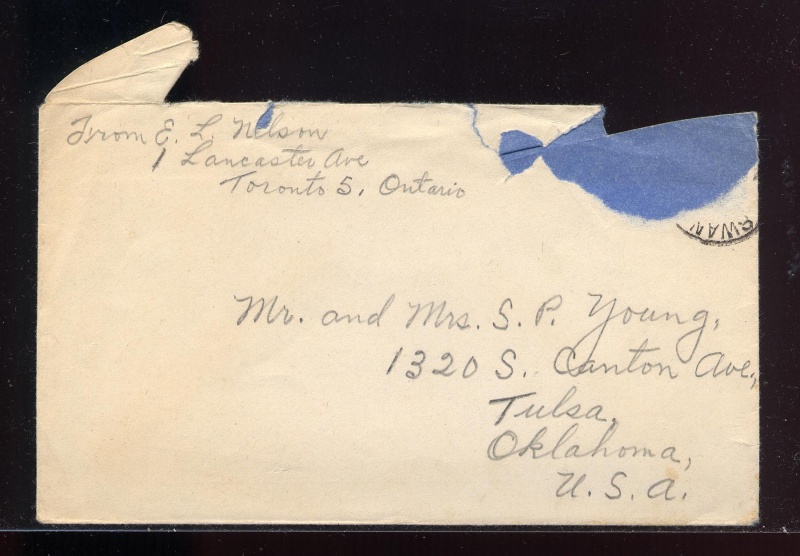 From E. L. Nelson
1 Lancaster Ave
Toronto 5, Ontario
SWAN
Mr. and Mrs. S. P. Young,
1320 S. Canton Ave.,
Tulsa,
Oklahoma,
U. S. A.